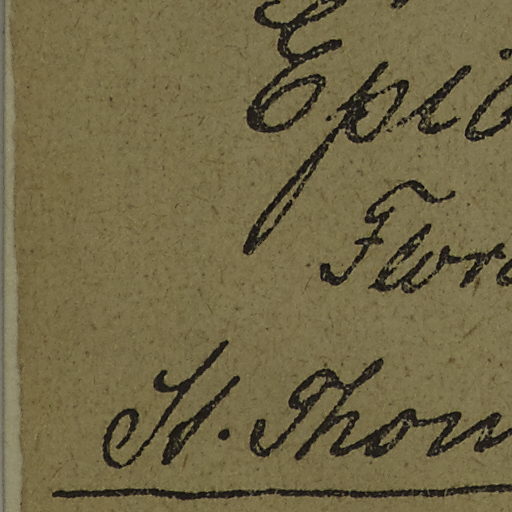 Epi
Flor
St. Thom